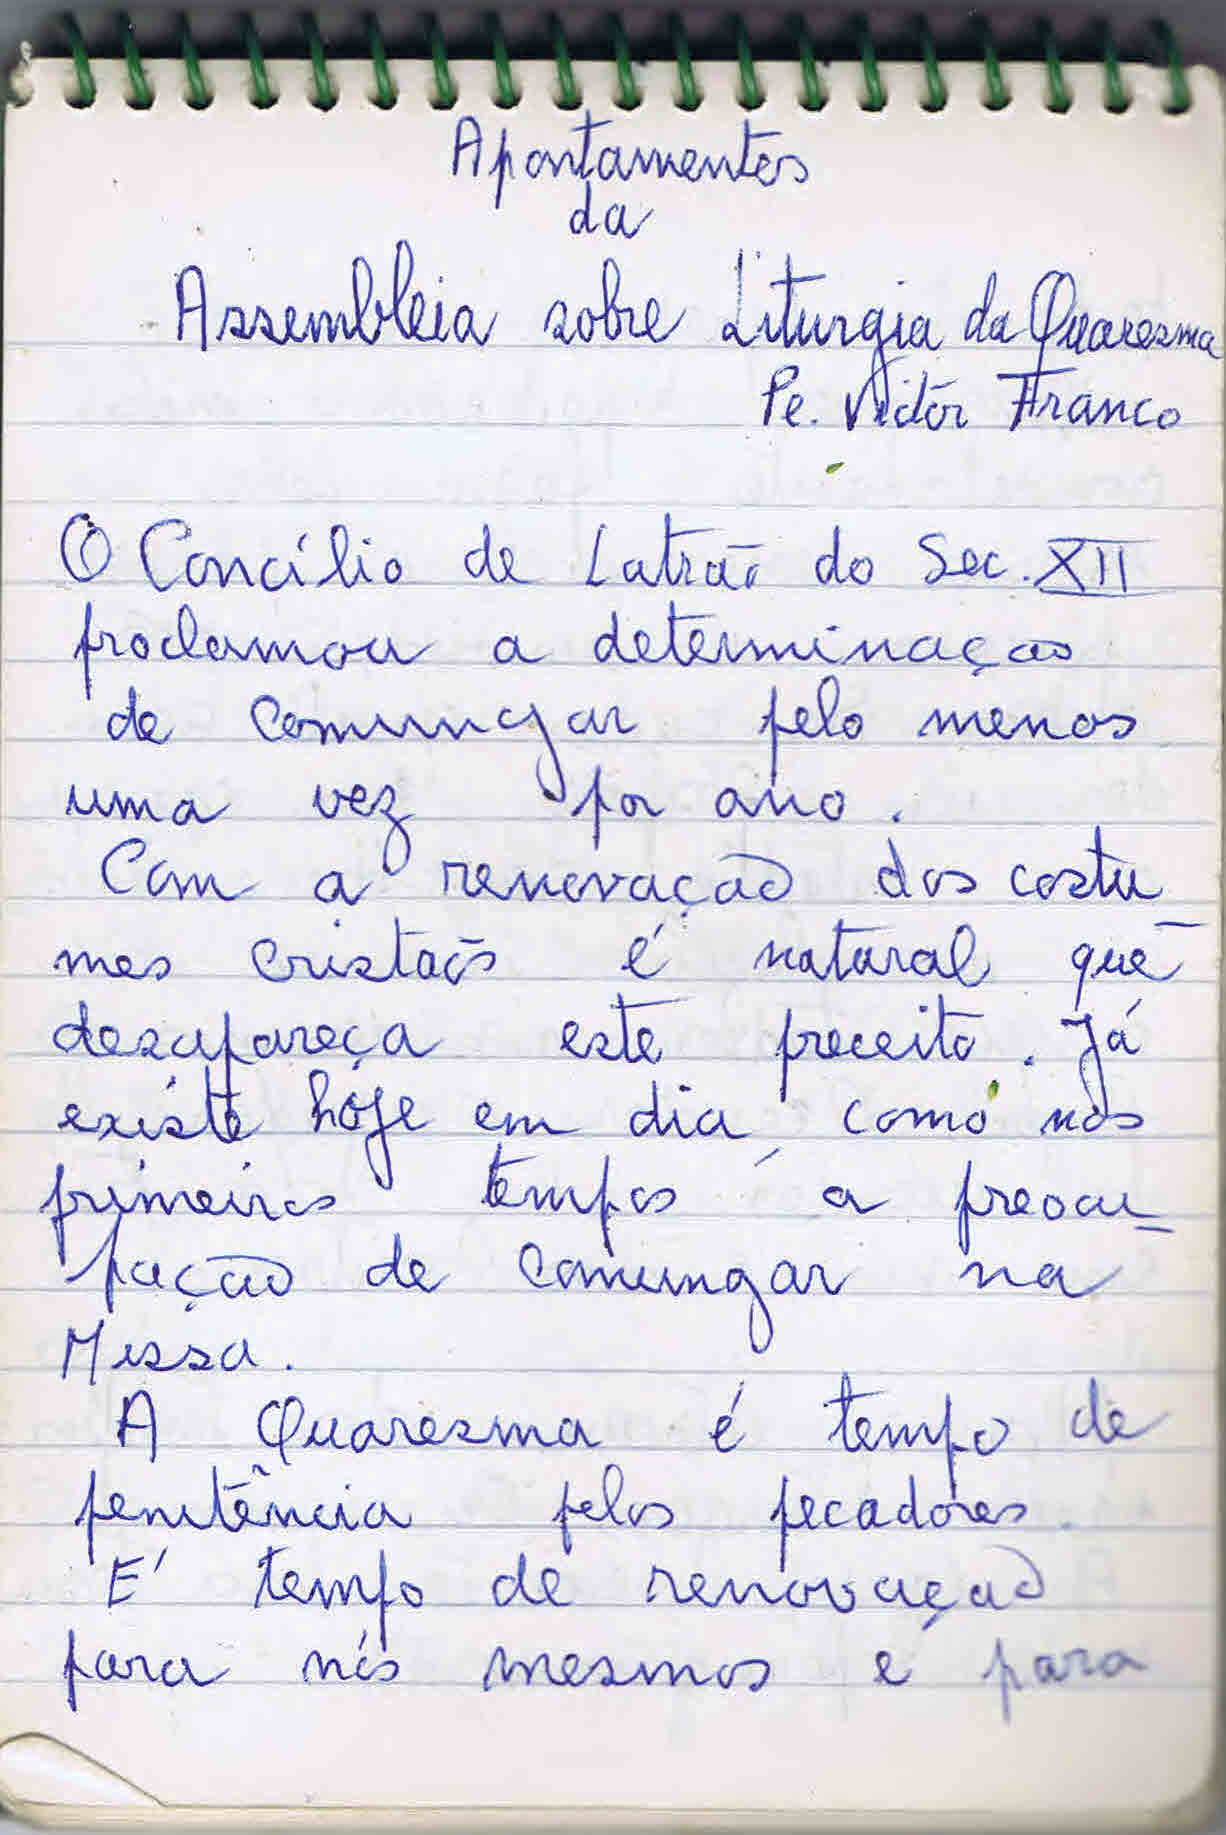 Apontamentos
da
Assembleia sobre Liturgia da Quaresma
Pe. Victor Franco
O Concílio de Latrão do Sec. XII
proclamou a determinação
de comungar pelo menos
uma vez por ano.
Com a renovação dos costu
mes cristãos é natural que
desapareça este preceito. Já
existe hoje em dia, como nos
primeiros tempos a preocu-
pação de comungar na
Missa.
A Quaresma é tempo de
penitência pelos pecadores.
É tempo de renovação
para nós mesmos e para